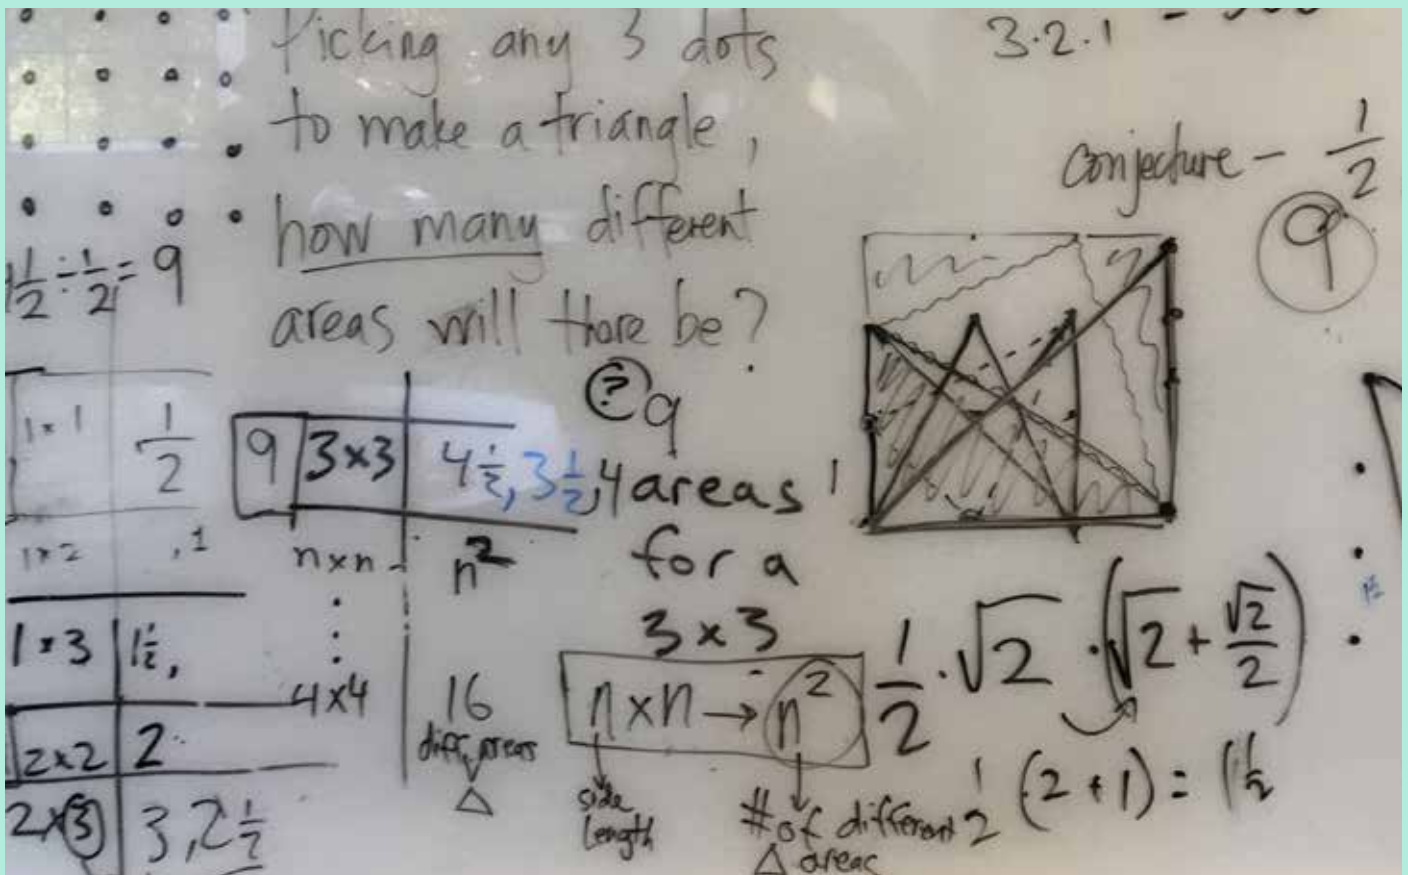 Picking any 3 dots
to make a triangle,
how many different
areas will there be?
3·2·1
conjecture - 1/2
9
1/2 ÷ 1/2 = 9
1×1 1/2
1×2 , 1
1×3 1 1/2,
2×2 2
2×3 3, 2 1/2
9 3×3 4 1/2, 3 1/2, 4
n×n n²
4×4 16
diff. areas
△
? 9
areas
for a
3×3
n×n → n²
side
length
# of different
△ areas
1/2 · √2 · (√2 + √2/2)
1/2 (2+1) = 1 1/2